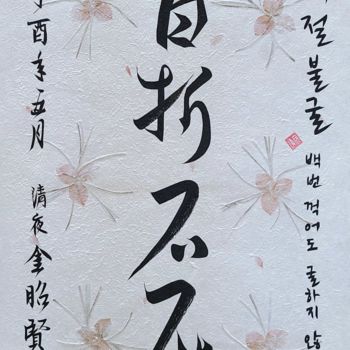 절불굴 백번 꺾어도 굴하지 않
百折不
酉年五月 清夜 金昭賢